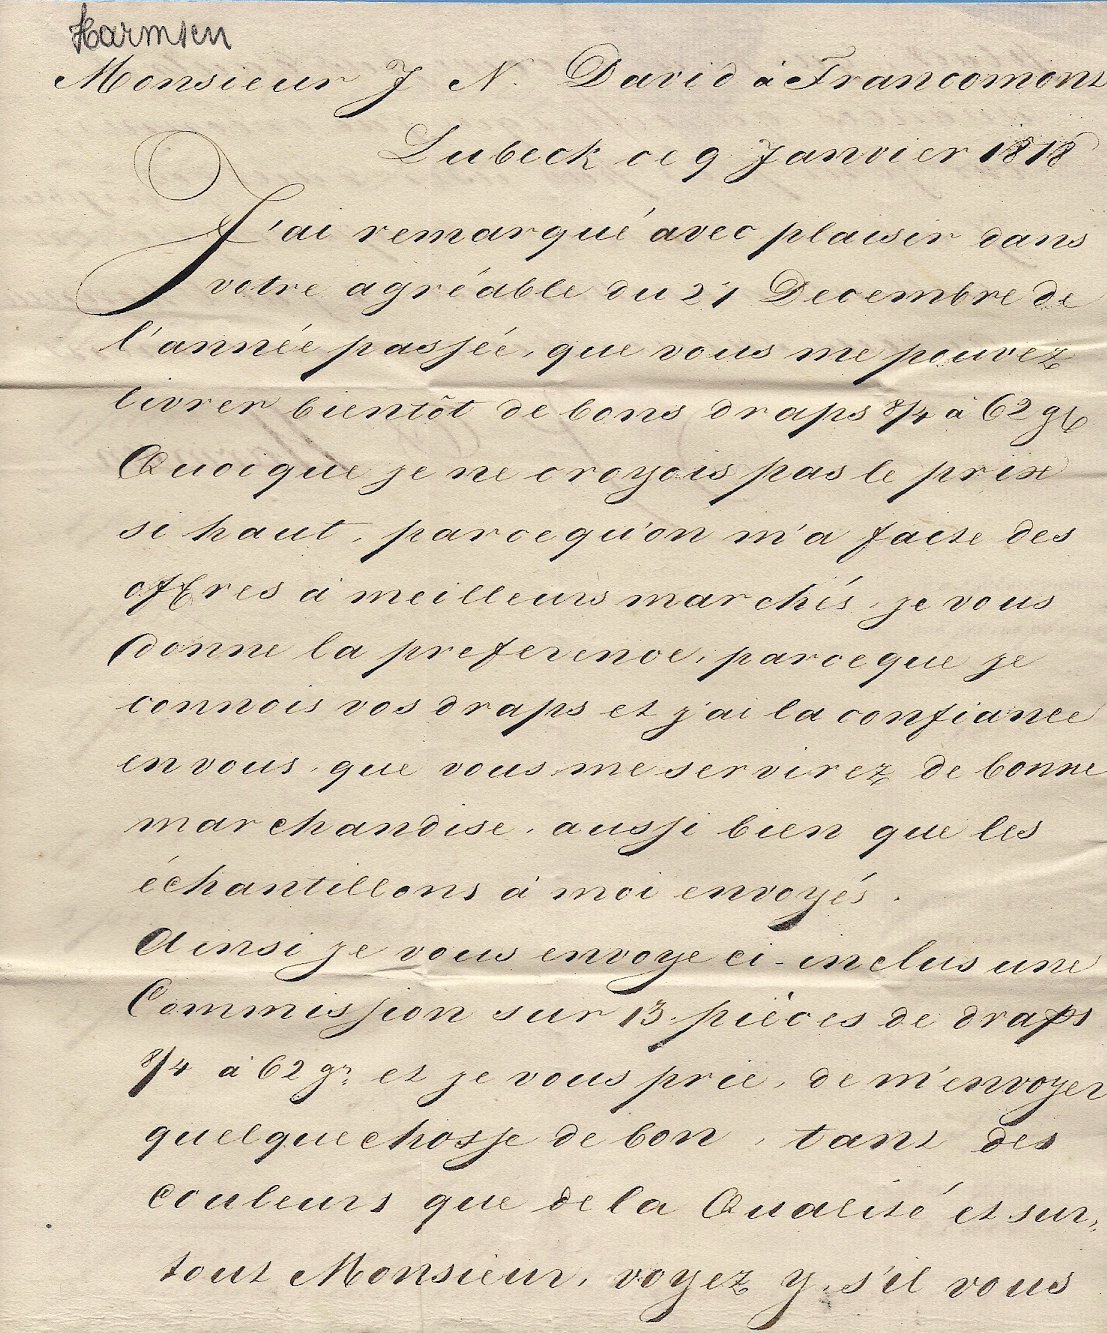 Harmsen
Monsieur J. N. David à Francomont
Lubeck ce 9 Janvier 1818
J'ai remarqué avec plaisir dans
votre agréable du 27 Decembre de
l'année passée, que vous me pouvez
livrer bientôt de bons draps 8/4 à 62 gß
Quoique je ne croyois pas le prix
si haut, parcequ'on m'a faite des
offres à meilleurs marchés, je vous
donne la preference, parceque je
connois vos draps et j'ai la confiance
en vous, que vous me servirez de bonne
marchandise, aussi bien que les
échantillons à moi envoyés.
Ainsi je vous envoye ci-inclus une
Commission sur 13 pièces de draps
8/4 à 62 gr. et je vous prie, de m'envoyer
quelquechosse de bon, tant des
couleurs que de la Qualité et sur,
tout Monsieur, voyez y, s'il vous